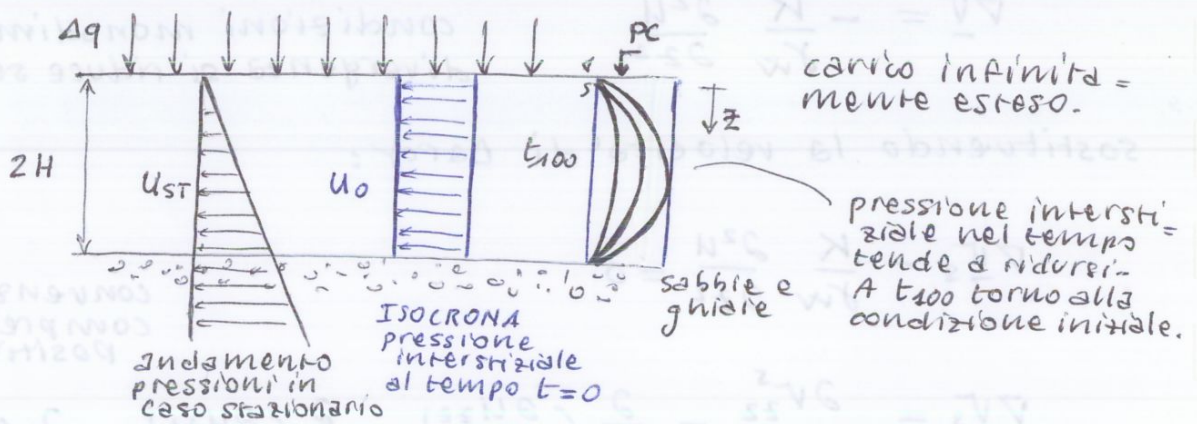 Δq
PC
carico infinita =
mente esteso.
z
2H
u_ST
u_0
t_100
pressione intersti =
ziale nel tempo
tende a ridursi.
A t_100 torno alla
condizione iniziale.
sabbie e
ghiaie
ISOCRONA
pressione
interstiziale
al tempo t=0
andamento
pressioni in
caso stazionario